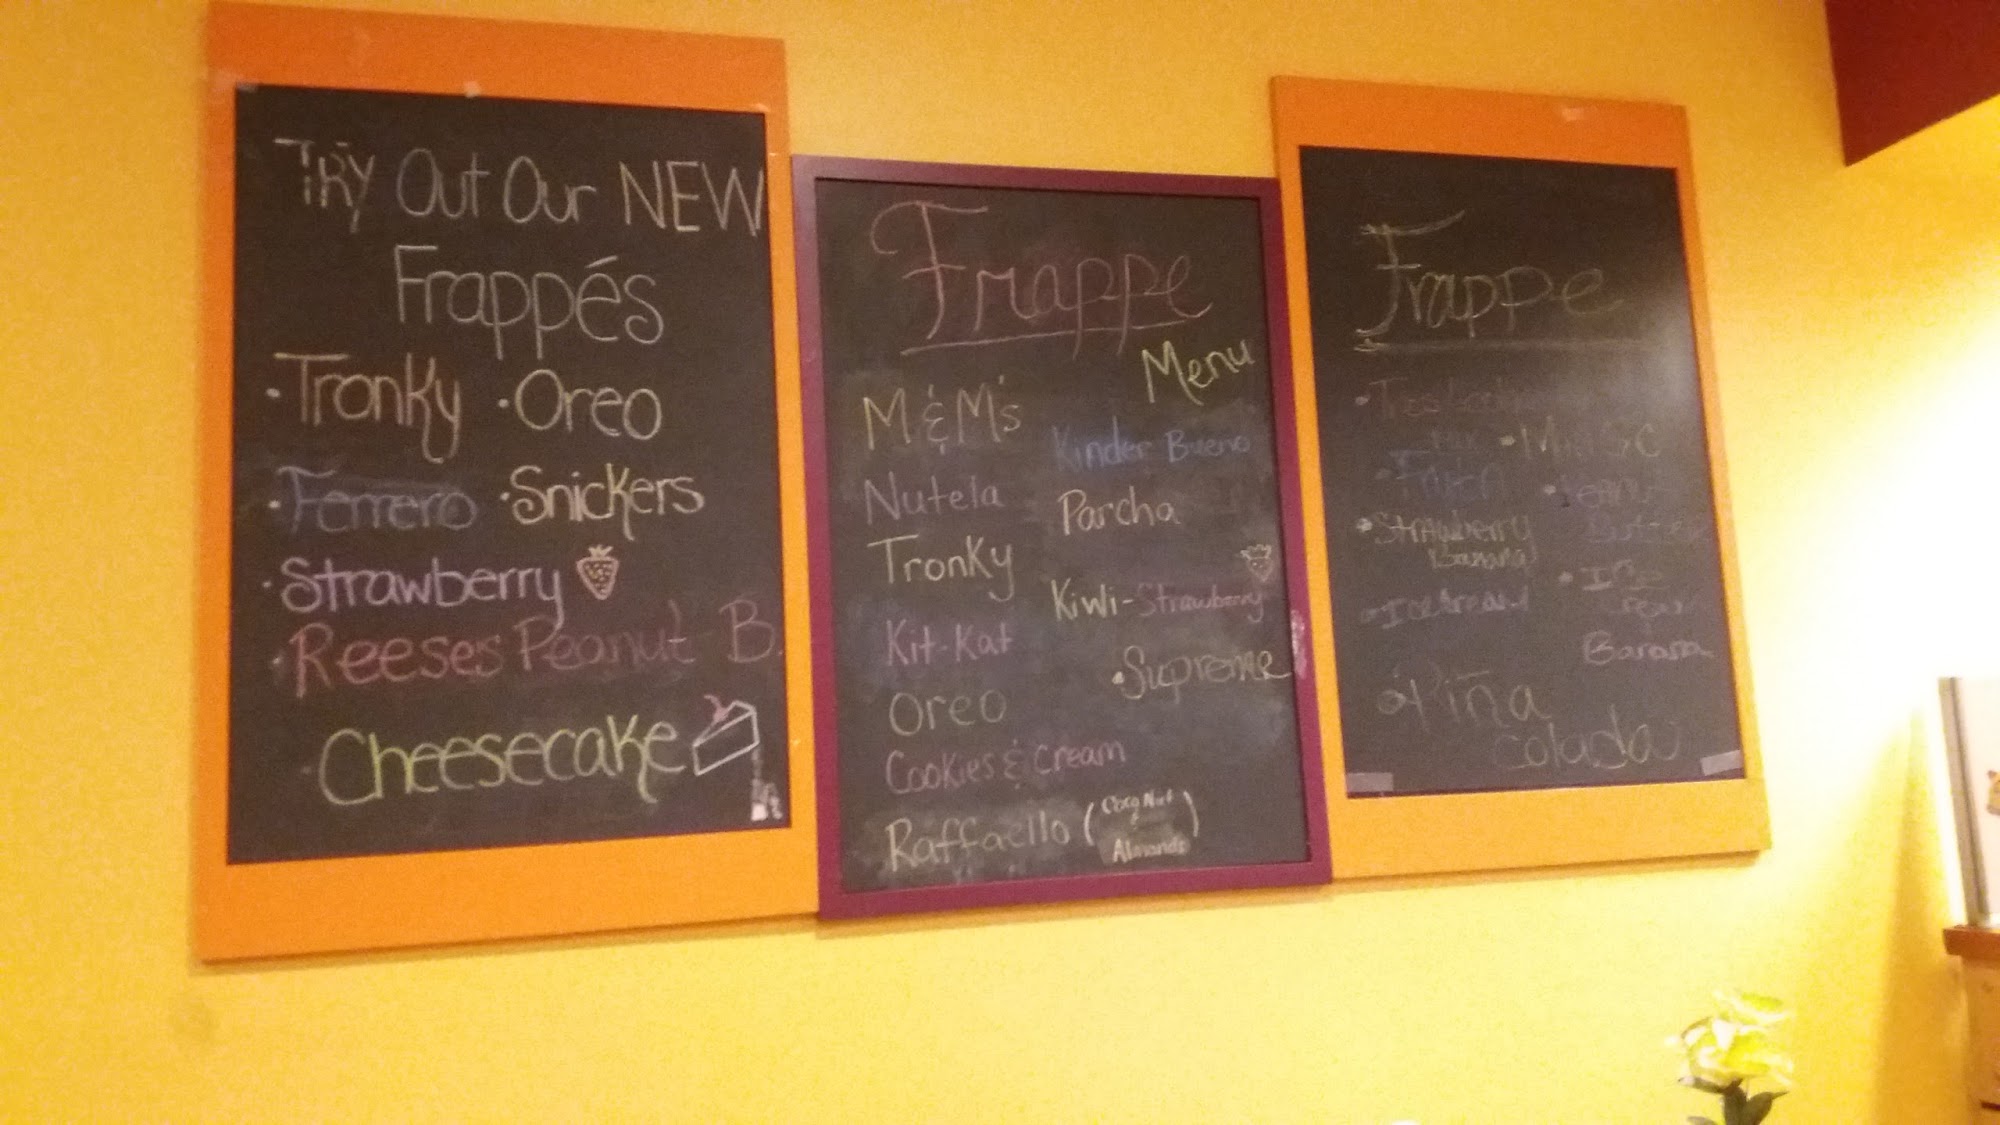 TRY Out Our NEW
Frappés
· Tronky · Oreo
· Ferrero · Snickers
· Strawberry
· Reeses Peanut B.
· Cheesecake
Frappe
Menu
M & M's
Nutela
Tronky
Kit-Kat
Oreo
Cookies & Cream
Raffaello (Coco Nut
Almonds)
Kinder Bueno
Parcha
Kiwi-Strawberry
· Supreme
Frappe
· Strawberry
Banana
· Ice Cream
· Piña
colada
Peanut
Butter
Cream
Banana